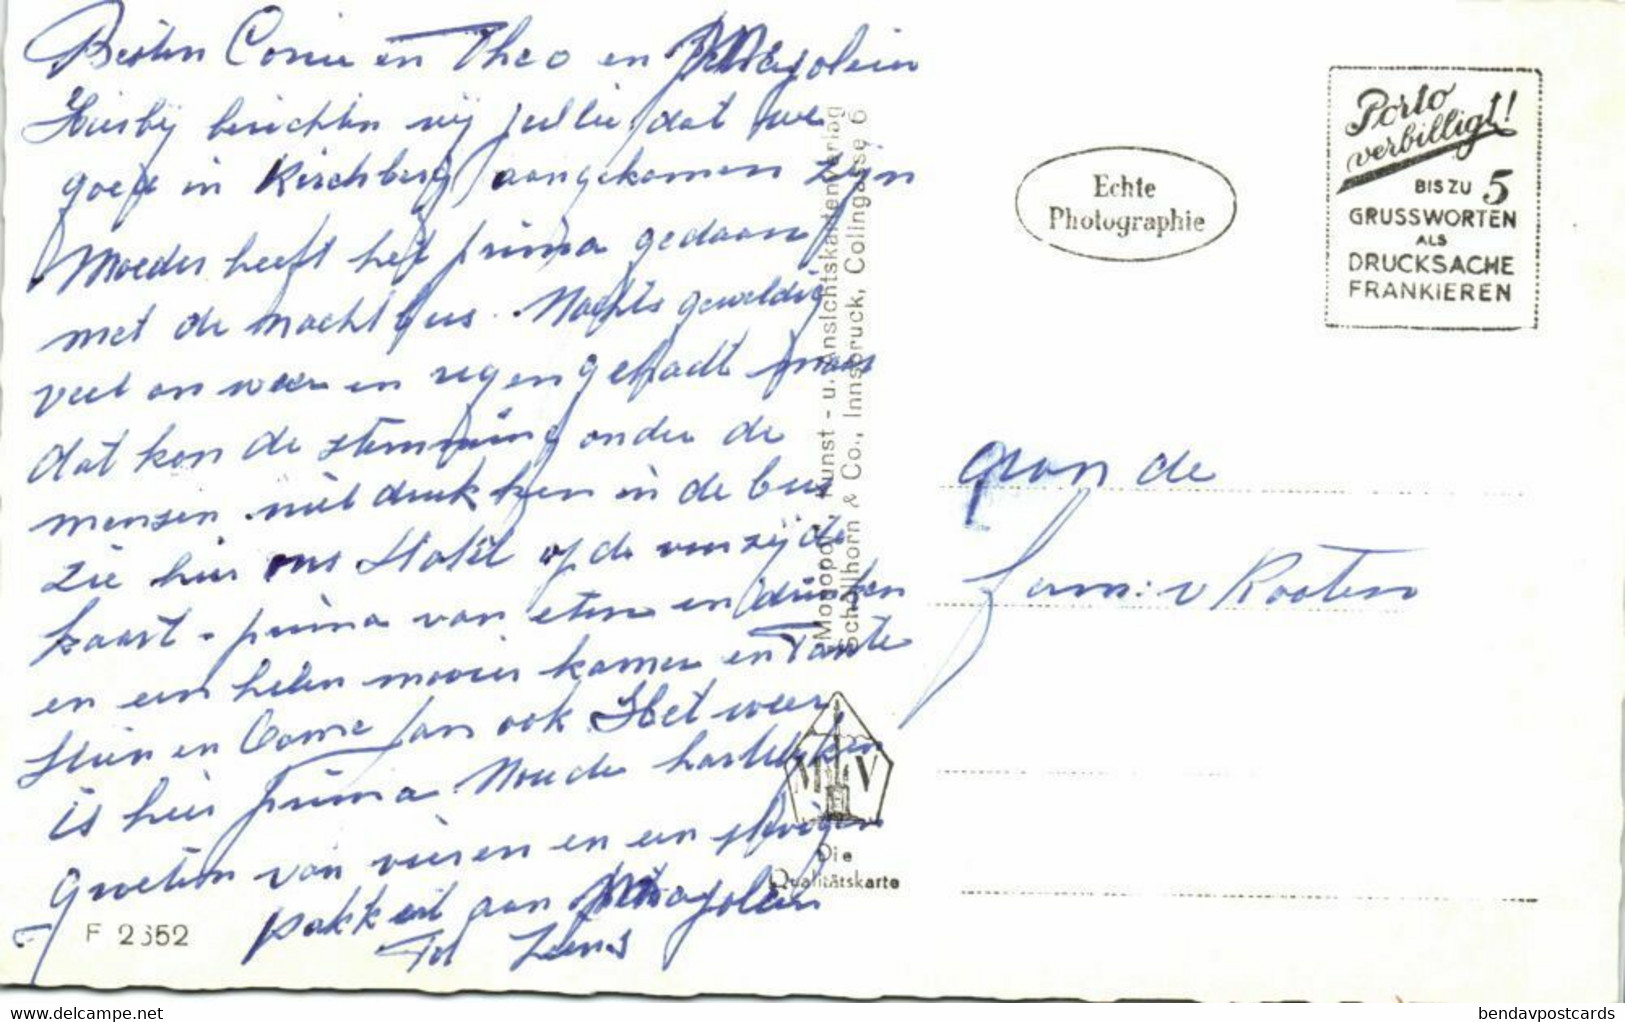 Besten Corrie en Theo en Marjolein
Hierbij berichten wij jullie dat we
goed in Kirchberg aangekomen zijn
Moeder heeft het prima gedaan
met de nachtbus. Nachts geweldig
veel onweer en regen gehadt maar
dat kon de stemming onder de
mensen niet drukken in de bus
Zie hier ons Hotel op de voorzijde
kaart. prima van eten en drinken
en een helen mooien kamer en Tante
Stien en Oome Jan ook Het weer
is hier prima Moeder hartelijken
groeten van vieren en een stevigen
pakkert aan Marjolein
Tot Ziens
F 2652
Monopol, Kunst- u. Ansichtskartenverlag
Schöllhorn & Co., Innsbruck, Colingasse 6
M V
Die
Qualitätskarte
Echte
Photographie
Porto
verbilligt!
BIS ZU 5
GRUSSWORTEN
ALS
DRUCKSACHE
FRANKIEREN
aan de
fam: v Rooten
delcampe.net
bendavpostcards